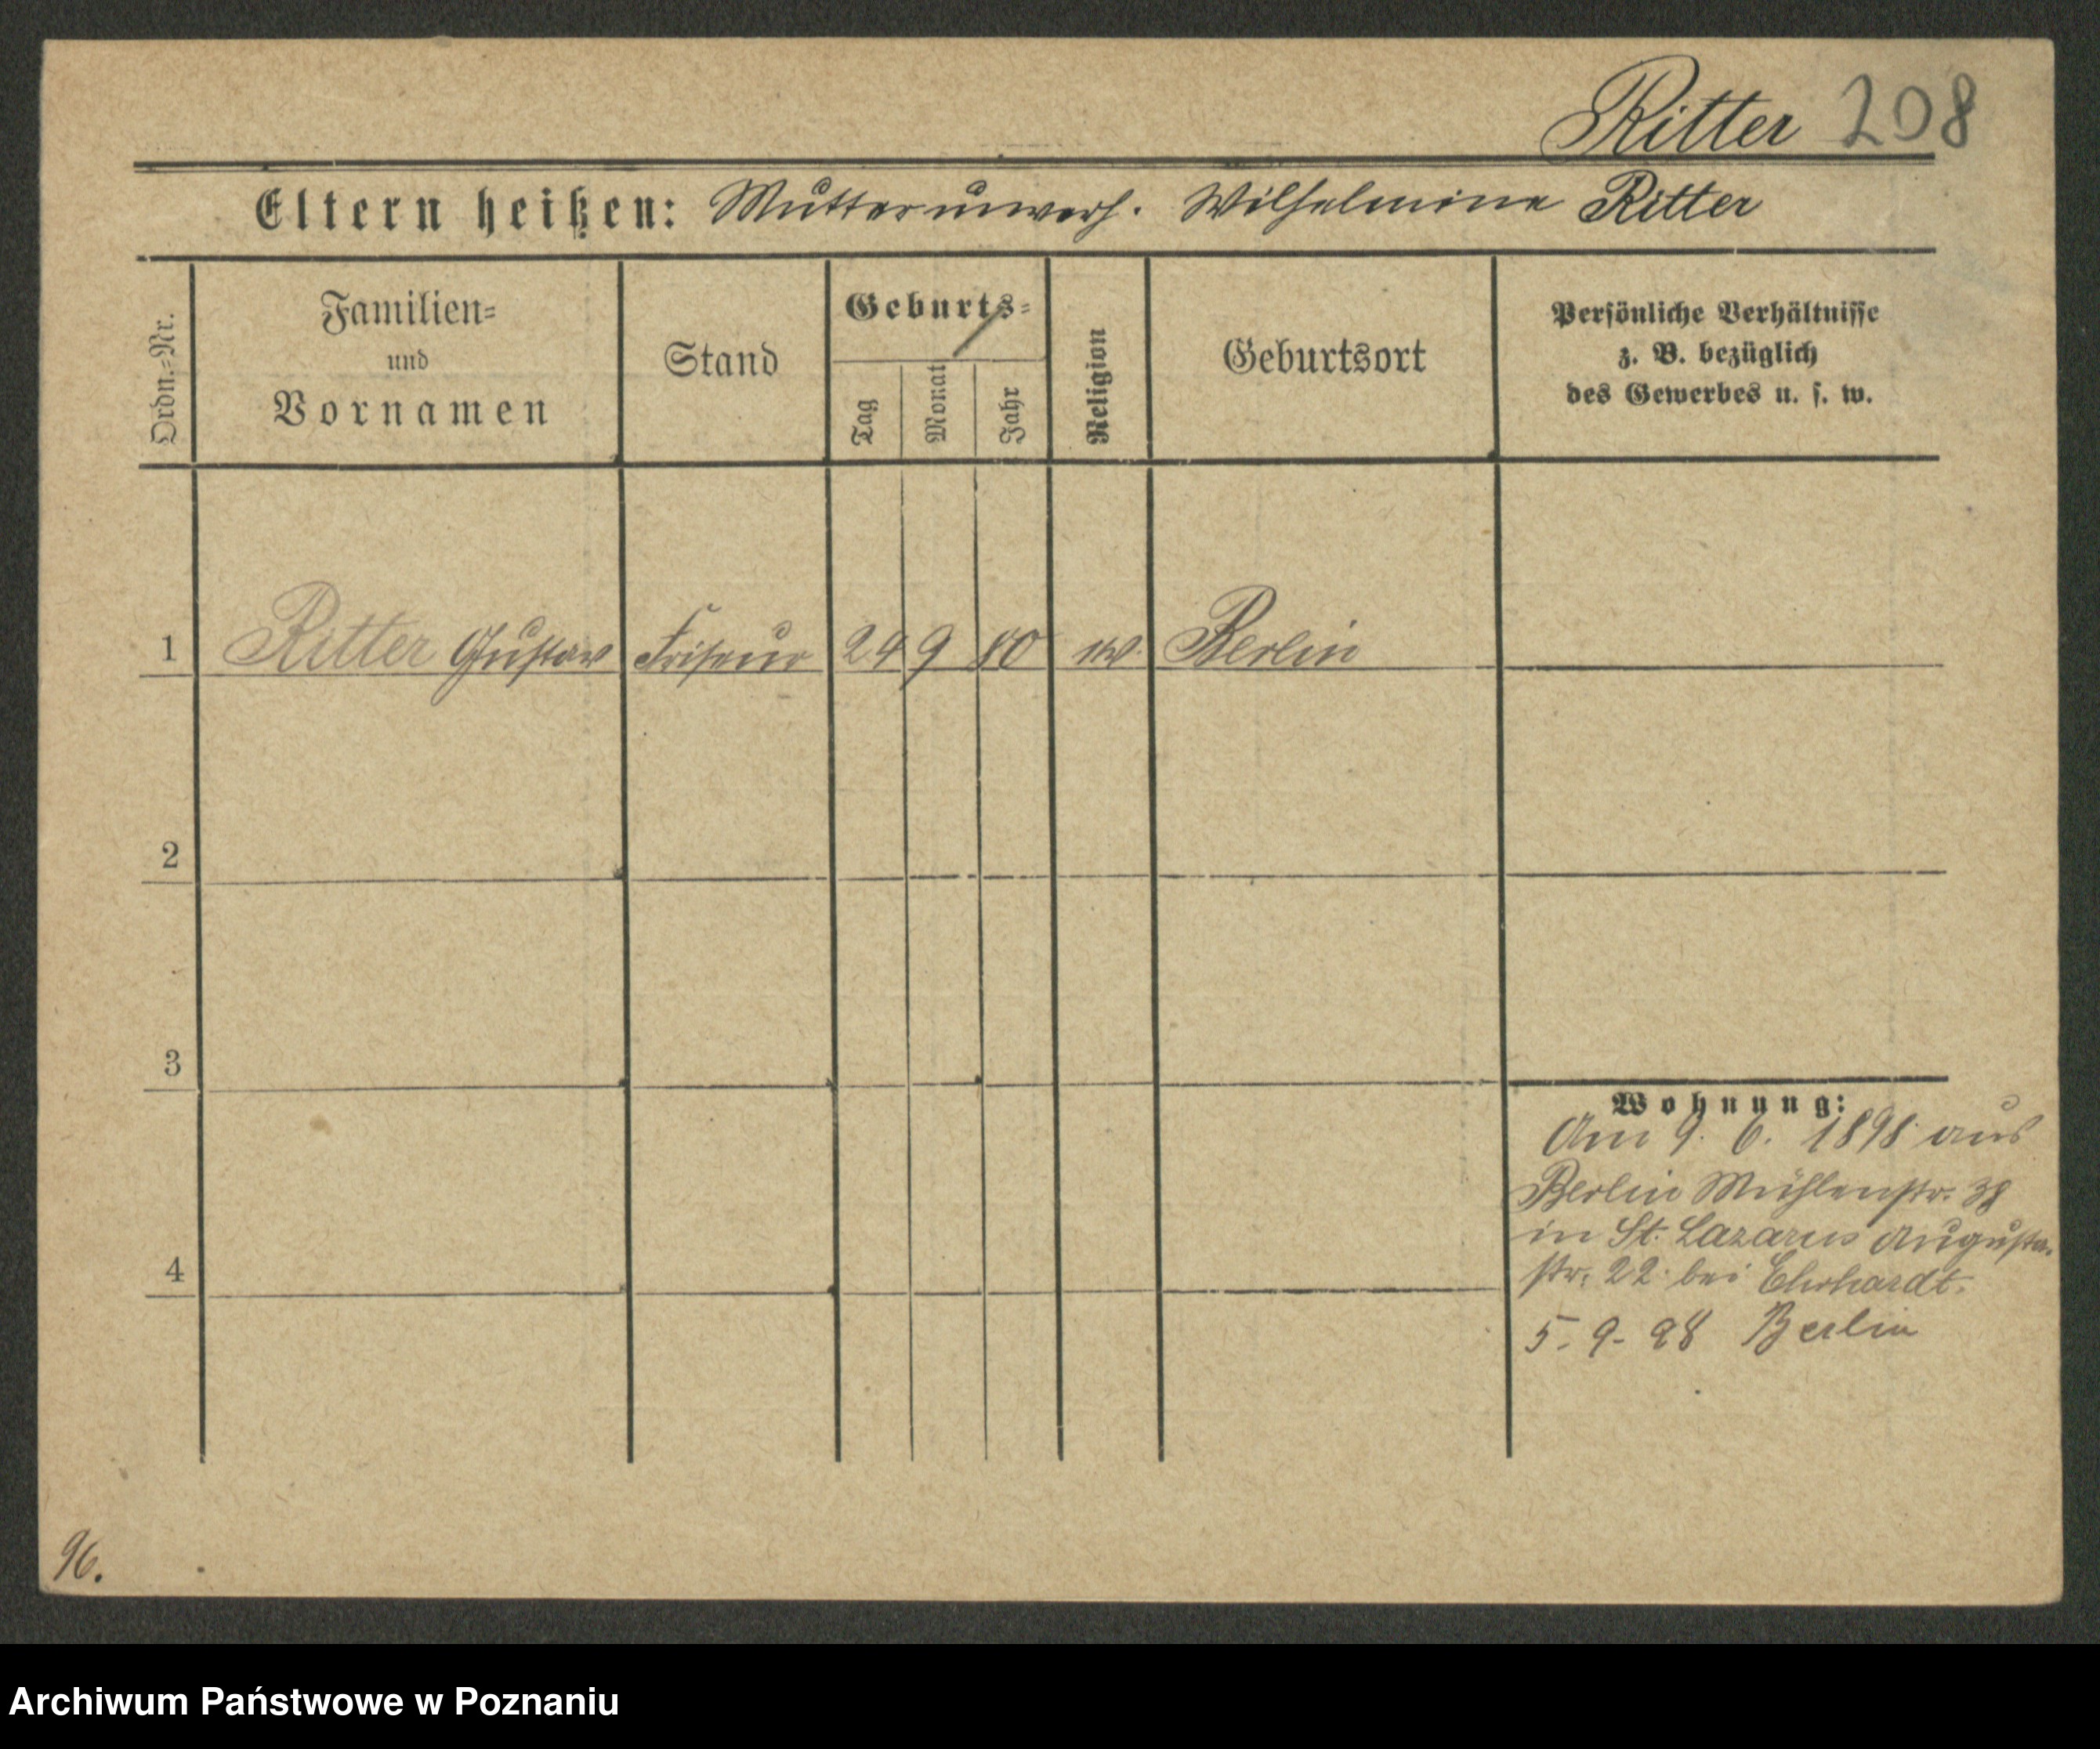 Ritter 208
Eltern heißen: Mutter unverh. Wilhelmine Ritter
Ordn.=Nr.
Familien=
und
Vornamen
Stand
Geburts=
Tag
Monat
Jahr
Religion
Geburtsort
Persönliche Verhältnisse
z. B. bezüglich
des Gewerbes u. s. w.
1 Ritter Gustav Friseur 24 9 80 Berlin
2
3
4
Wohnung:
Am 9. 6. 1898 aus
Berlin Mühlenstr. 38
in St. Lazarus Augusta-
str. 22 bei Ehrhardt.
5. 9. 98 Berlin
96.
Archiwum Państwowe w Poznaniu